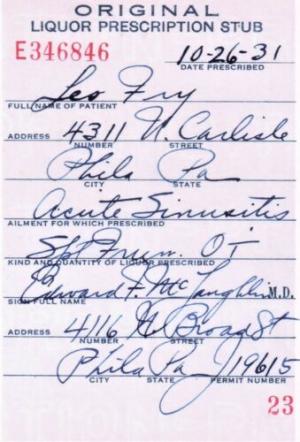 ORIGINAL
LIQUOR PRESCRIPTION STUB
E346846 10-26-31
DATE PRESCRIBED
Leo Fry
FULL NAME OF PATIENT
ADDRESS 4311 N. Carlisle
NUMBER STREET
Phila Pa
CITY STATE
Acute Sinusitis
AILMENT FOR WHICH PRESCRIBED
Spt Frum. OT
KIND AND QUANTITY OF LIQUOR PRESCRIBED
Edward F. McLaughlin M.D.
SIGN FULL NAME
ADDRESS 4116 N Broad St
NUMBER STREET
Phila Pa J19615
CITY STATE PERMIT NUMBER
23